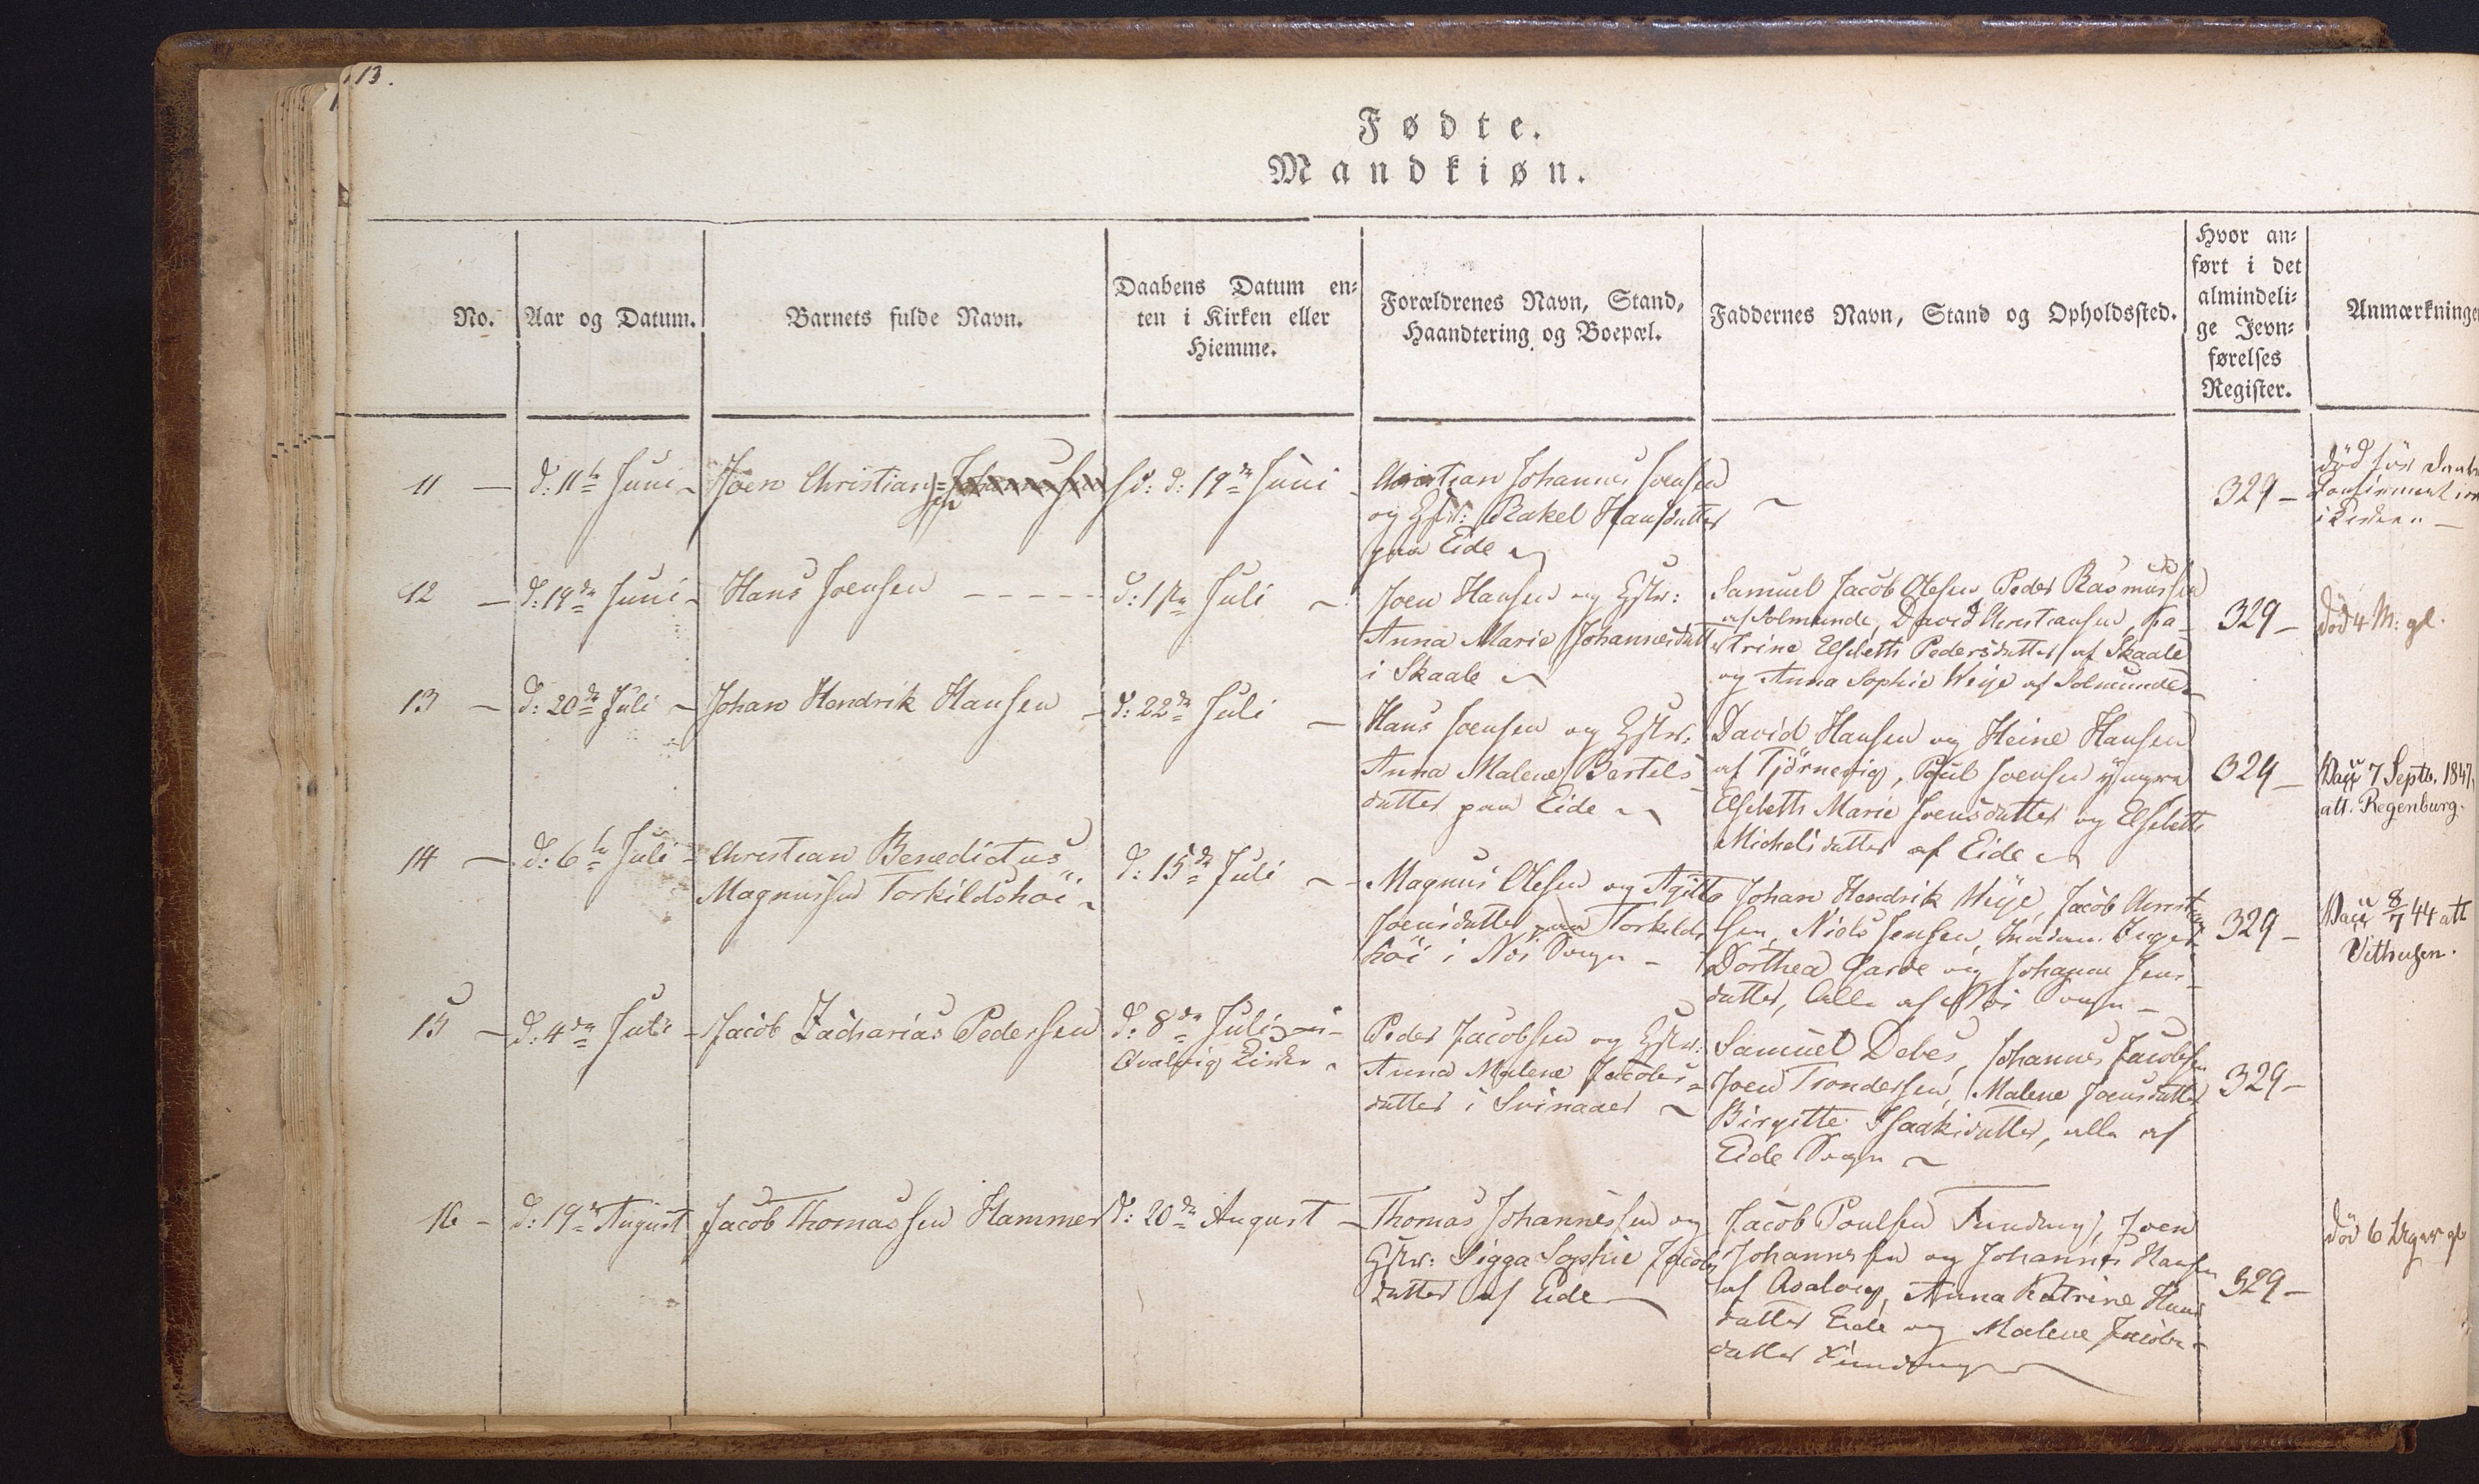 13.
Fødte.
Mandkiøn.
No.
Aar og Datum.
Barnets fulde Navn.
Daabens Datum en-
ten i Kirken eller
Hiemme.
Forældrenes Navn, Stand,
Haandtering og Boepæl.
Faddernes Navn, Stand og Opholdssted.
Hvor an-
ført i det
almindeli-
ge Jevn-
førelses
Register.
Anmærkninge
11 — d: 11te Juni - Joen Christian=
sen
d: 19de Juni -
Christian Johannes Joensen
og Hstr: Rakel Hansdatter
paa Eide
329 —
død før
i Kirken —
12 — d: 19de Juni - Hans Joensen - - - - -
d: 1ste Juli
Joen Hansen og Hstr:
Anna Marie Johannesdatt
i Skaale
Samuel Jacob Olesen, Peder Rasmussen
af Solmunde, David Christiansen, Ca
trine Elsebeth Pedersdatter af Skaale
og Anna Sophie Weije af Solmunde
329 —
död 4 M: gl.
13 — d: 20de Juli - Johan Hendrik Hansen -
d: 22de Juli —
Hans Joensen og Hstr:
Anna Malene Bertels
datter paa Eide
David Hansen og Heine Hansen
af Tjörnevig, Poul Joensen yngre
Elsebeth Marie Joensdatter og Elsebeth
Michelsdatter af Eide
329 —
Vacc 7 Septb. 1847,
att. Regenburg.
14 — d: 6te Juli - Christian Benedictus
Magnussen Torkildshöi
d: 15de Juli
Magnus Olesen og Agitte
Joensdatter paa Torkilds
höi i Nöi Sogn -
Johan Hendrik Weije, Jacob Christian
sen, Niels Jensen, Madam Inger
Dorthea Garde og Johanne Jens-
datter, Alle af Nöi Sogn —
329 —
Vacc 8/7 44 att
Vithusen.
15 — d: 4de Juli - Jacob Zacharias Pedersen
d: 8de Juli i
Qvalvig Kirke
Peder Jacobsen og Hstr:
Anna Malene Jacobs-
datter i Svinaaer
Samuel Debes, Johannes Jacobsen
Joen Trondersen, Malene Joensdatter
Birgitte Isaaksdatter, alle af
Eide Sogn
329 —
16 - d: 19de August Jacob Thomassen Hammer
d: 20de August -
Thomas Johannessen og
Hstr: Sigga Sophie Jacobs
datter af Eide
Jacob Poulsen Funding, Joen
Johannessen og Johannes Hansen
af Qvalvig, Anna Katrine Hans
datter Eide og Malene Jacobs-
datter Funding
329 —
död 6 Uger gl